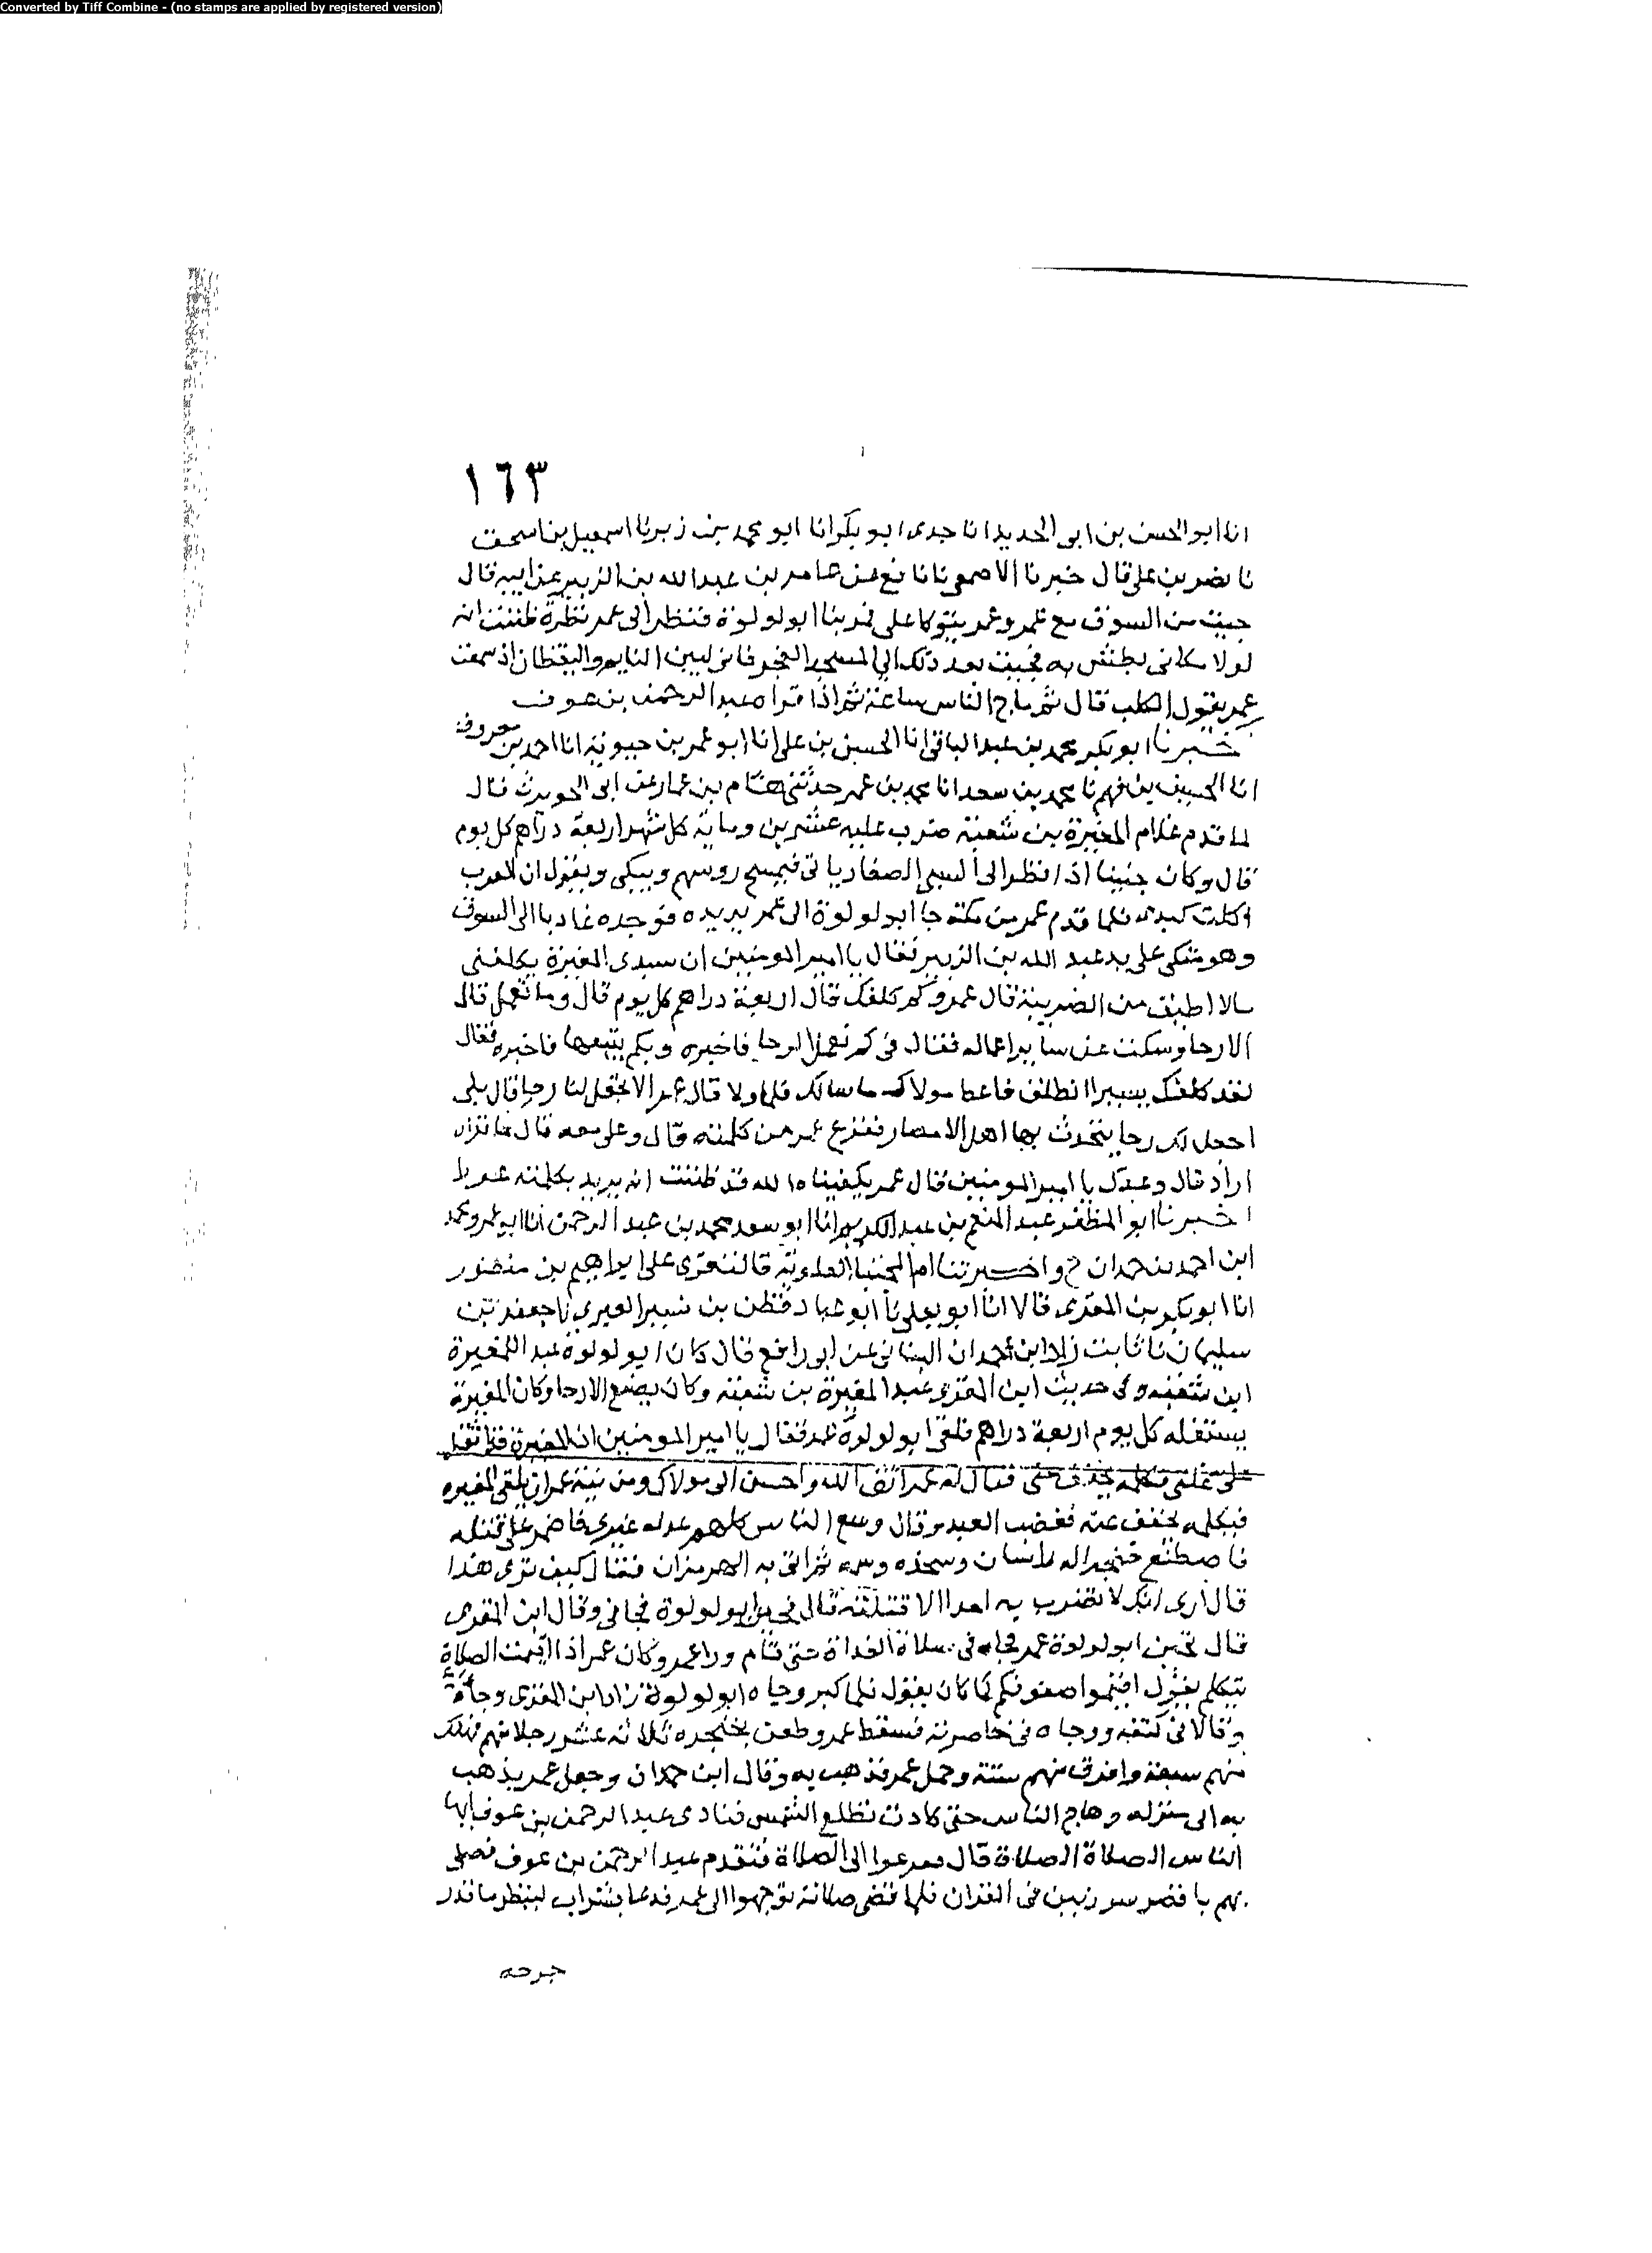 Converted by Tiff Combine - (no stamps are applied by registered version)
١٦٣
انا ابو الحسن بن ابى الحديد انا جدى ابو بكر انا ابو محمد بن زبر نا اسمعيل بن اسحق
نا نضر بن على قال خبرنا الاصمعى نا نافع عن عامر بن عبد الله بن الزبير عن ابيه قال
جيت من السوق مع عمر وعمر يتوكا على فمر بنا ابو لولوة فنظر الى عمر نظرة ظننت انه
لولا مكانى بطش به فجيت بعد ذلك الى المسجد الفجر فانى لبين النايم واليقظان اذ سمعت
عمر يقول الكلب قال ثم ماج الناس ساعة ثم اذا قراة عبد الرحمن بن عوف
خبرنا ابو بكر محمد بن عبد الباقى انا الحسن بن على انا ابو عمر بن حيوية انا احمد بن معروف
انا الحسين بن فهم نا محمد بن سعد انا محمد بن عمر حدثنى هشام بن عمار عن ابى الحويرث قال
لما قدم غلام المغيرة بن شعبة ضرب عليه عشرين وماية كل شهر اربعة دراهم كل يوم
قال وكان خبيثا اذا نظر الى السبى الصغار ياتى فيمسح روسهم ويبكى ويقول ان العرب
اكلت كبدى فلما قدم عمر من مكة جا ابو لولوة الى عمر يريده فوجده غاديا الى السوق
وهو متكى على يد عبد الله بن الزبير فقال يا امير المومنين ان سيدى المغيرة يكلفنى
مالا اطيق من الضريبة قال عمر وكم كلفك قال اربعة دراهم كل يوم قال وما تعمل قال
الارحا وسكت عن ساير اعماله فقال فى كم تعمل الرحا فاخبره وبكم يتبعها فاخبره فقال
لقد كلفك يسيرا انطلق فاعط مولاك ما سالك فلما ولا قال عمر الا تجعل لنا رحا قال بلى
اجعل لك رحا يتحدث بها اهل الامصار ففزع عمر من كلمته قال وعلى معه قال ما تراه
اراد قال وعدك يا امير المومنين قال عمر يكفيناه الله قد ظننت انه يريد بكلمته غورا
اخبرنا ابو المظفر عبد المنعم بن عبد الكريم انا ابو سعد محمد بن عبد الرحمن انا ابو عمرو محمد
ابن احمد بن حمدان ح واخبرتنا ام المجتبا العلوية قالت قرى على ابراهيم بن منصور
انا ابو بكر بن المقرى قالا انا ابو يعلى نا ابو عباد قطن بن نسير الغبرى نا جعفر بن
سليمان نا ثابت زاد ابن حمدان البنانى عن ابى رافع قال كان ابو لولوة عبد المغيرة
ابن شعبه وفى حديث ابن المقرى عبدا لمغيرة بن شعبة وكان يصنع الارحا وكان المغيرة
يستغله كل يوم اربعة دراهم فلقى ابو لولوة عمر فقال يا امير المومنين ان المغيرة قد اثقل
على غلتى فكلمه يخفف عنى فقال له عمر اتق الله واحسن الى مولاك ومن نية عمر ان يلقى المغيره
فيكلمه يخفف عنه فغضب العبد وقال وسع الناس كلهم عدله غيرى فاضمر على قتله
فاصطنع خنجرا له راسان وسحذه وسمه ثم اتى به الهرمزان فقال كيف ترى هذا
قال ارى انك لا تضرب به احدا الا قتلته قال فتحين ابو لولوة فجا فى وقال ابن المقرى
قال تحين ابو لولوة عمر فجاه فى صلاة الغداة حتى قام ورا عمر وكان عمر اذا اقيمت الصلاة
يتكلم يقول اقيموا صفوفكم كما كان يقول فلما كبر وجاه ابو لولوة زاد ابن المقرى وجاة
وقالا فى كتفه ووجاه فى خاصرته فسقط عمر وطعن بخنجره ثلاثة عشر رجلا منهم فهلك
منهم سبعة وافرق منهم ستة وحمل عمر فذهب به وقال ابن حمدان وجعل عمر يذهب
به الى منزله وهاج الناس حتى كادت تطلع الشمس فنادى عبد الرحمن بن عوف ايها
الناس الصلاة الصلاة قال ففزعوا الى الصلاة فتقدم عبد الرحمن بن عوف فصلى
بهم باقصر سورتين فى القران فلما قضى صلاته توجهوا الى عمر فدعا بشراب لينظر ما قدر
جرحه